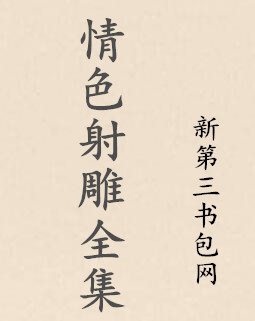 情色射雕全集
新第三书包网